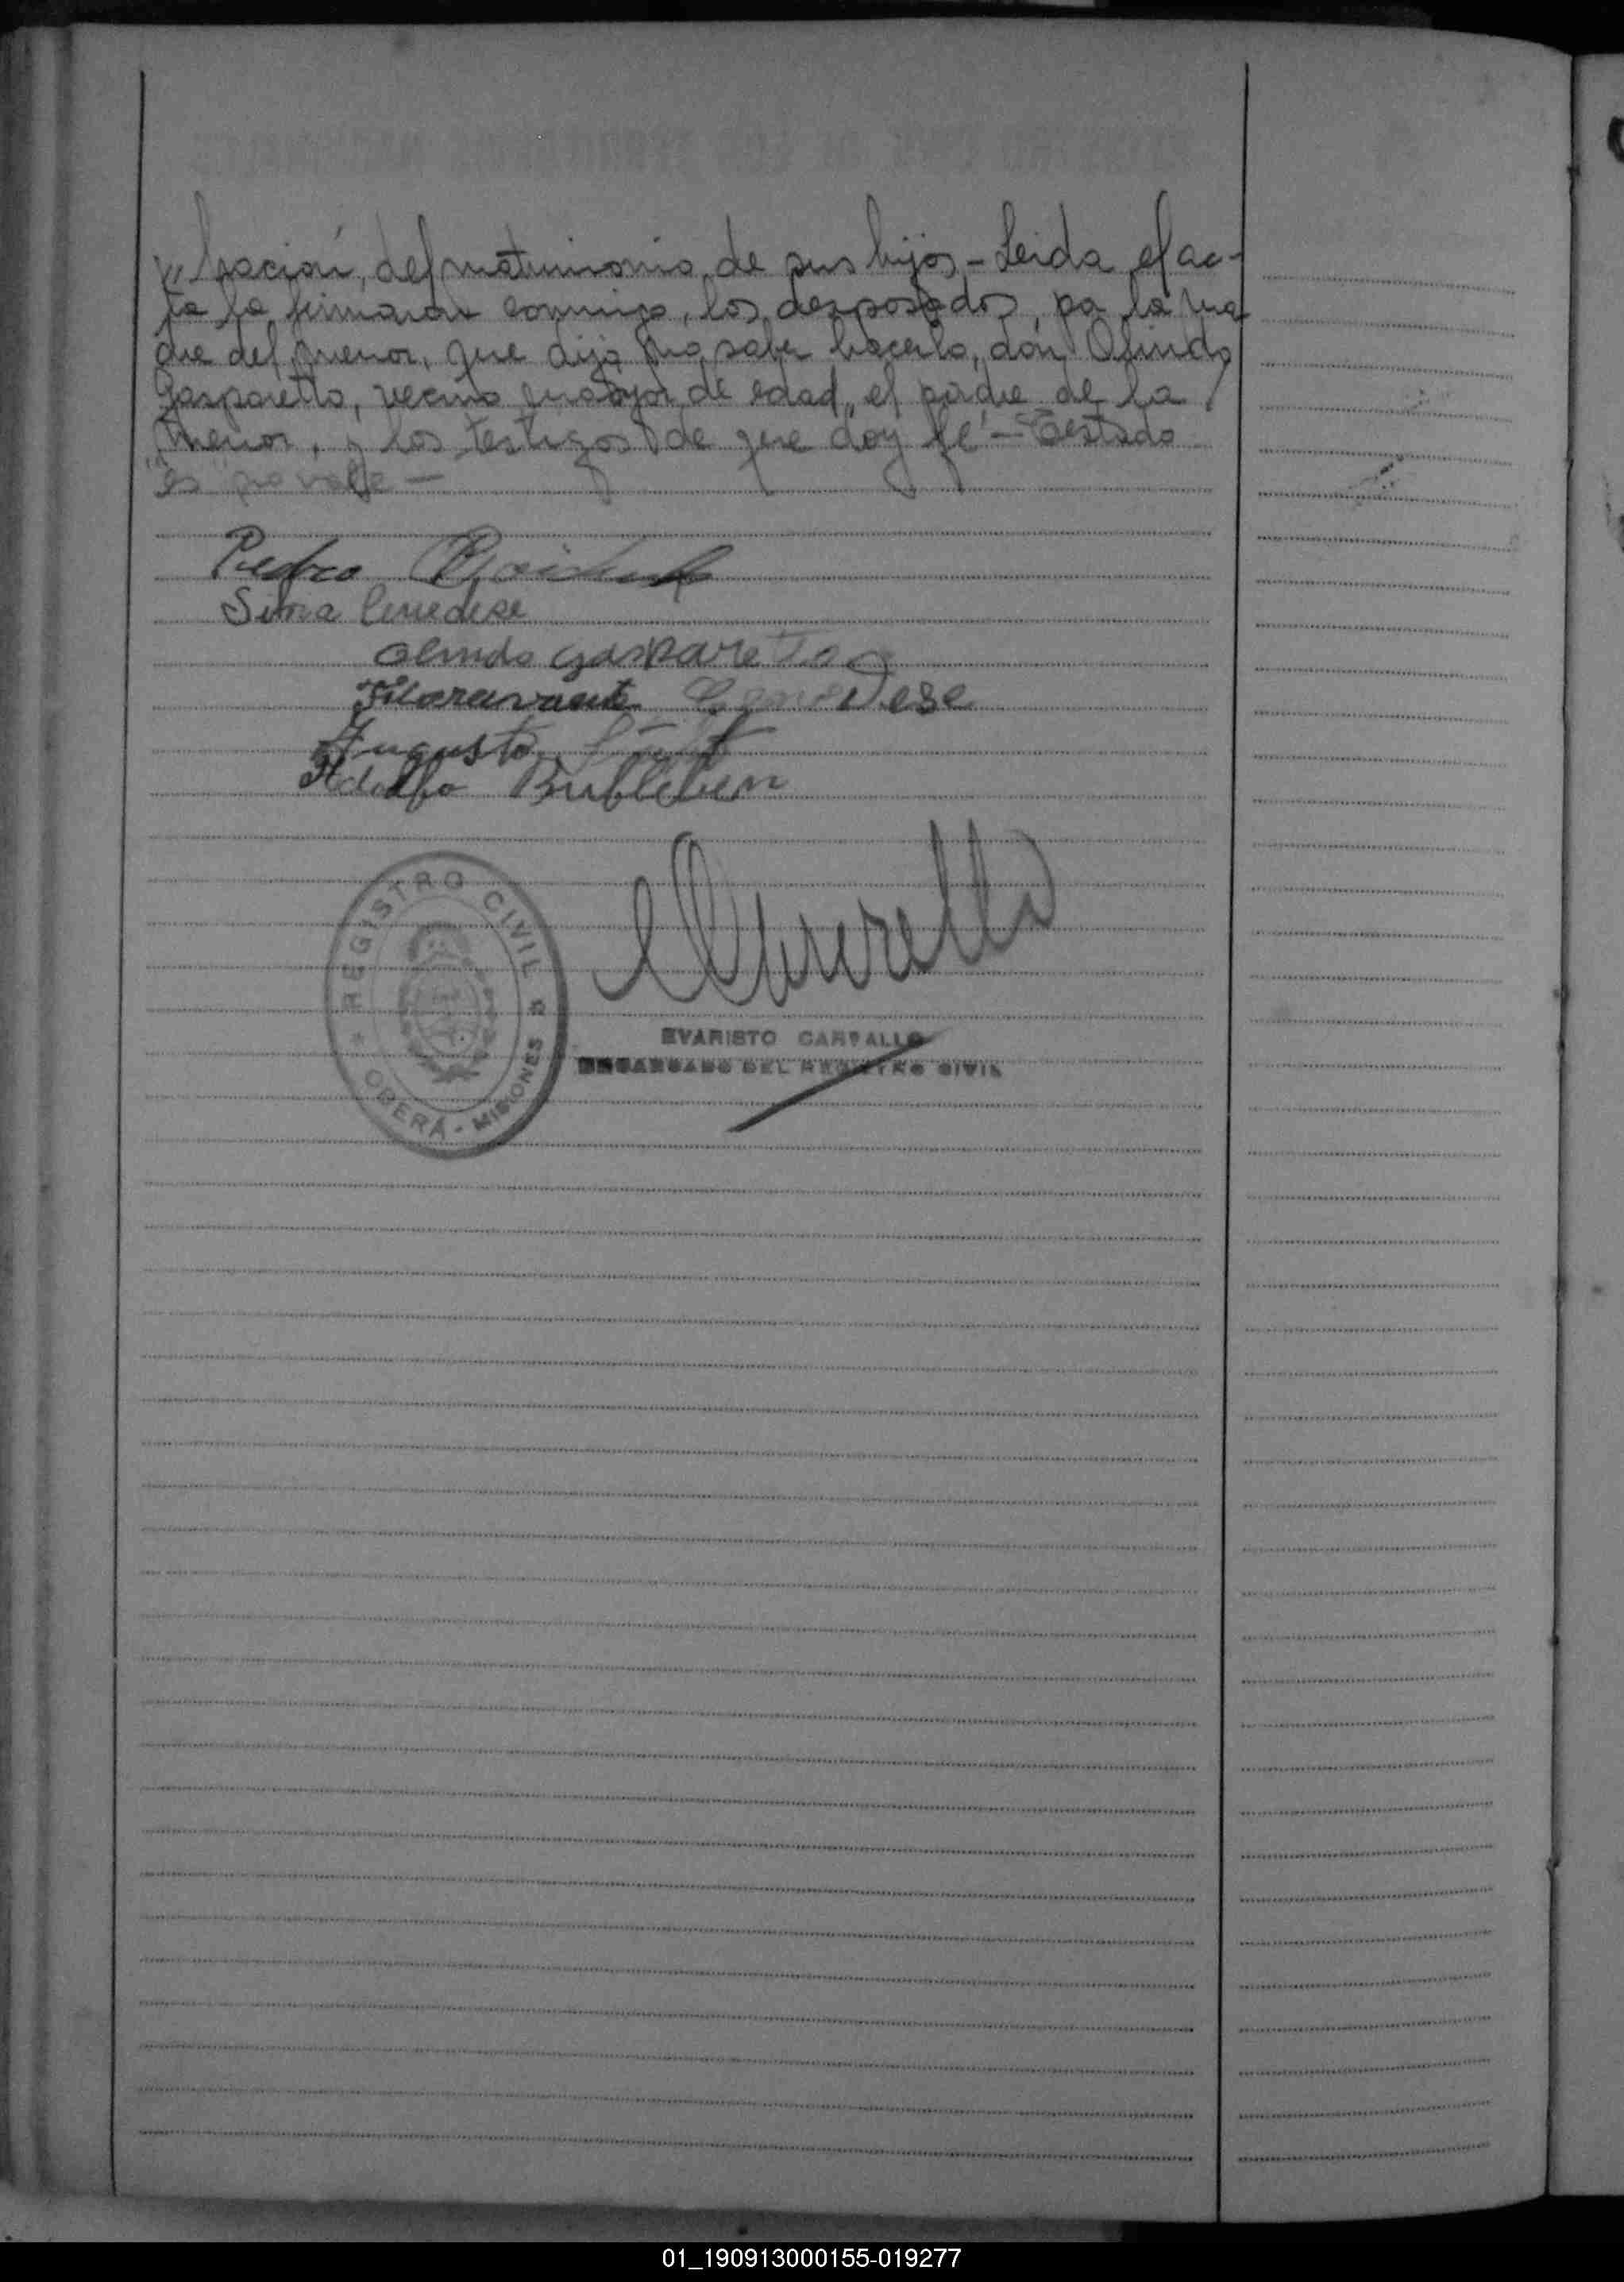 bración, del matrimonio de sus hijos - Leida el ac-
ta la firmaron conmigo, los desposados, por la ma
dre del menor, que dijo no saber hacerlo, don Olindo
Gasparetto, vecino mayor de edad, el padre de la
menor, y los testigos de que doy fé - Testado
"es" no vale -
Pedro
Silvia Cenedese
Olindo Gaspareto
Fioravante Cenedese
Augusto
Adolfo Bubleben
REGISTRO CIVIL
OBERÁ - MISIONES
EVARISTO CARVALLO
ENCARGADO DEL REGISTRO CIVIL
01_190913000155-019277